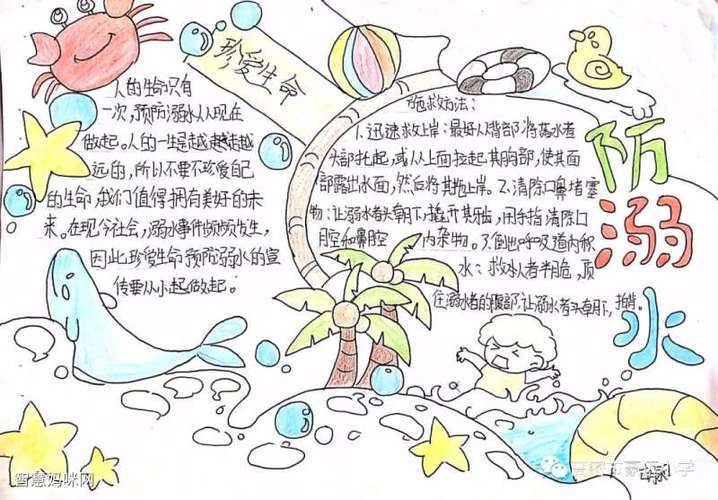 珍爱生命
人的生命只有
一次,预防溺水从现在
做起。人的一生是越越越越
远的,所以不要不珍爱自己
的生命,我们值得拥有美好的未
来。在现今社会,溺水事件频频发生,
因此珍爱生命预防溺水的宣
传要从小起做起。
施救方法:
1.迅速救上岸:最好从背部将落水者
头部托起,或从上面拉起其胸部,使其面
部露出水面,然后将其拖上岸。2.清除口鼻堵塞
物:让溺水者头朝下,撬开其牙齿,用手指清除口
腔和鼻腔内杂物。3.倒出呼吸道内积
水:救水人者半跪,顶
住溺水者的腹部,让溺水者头朝下,拍背。
防溺水
智慧妈咪网
小学